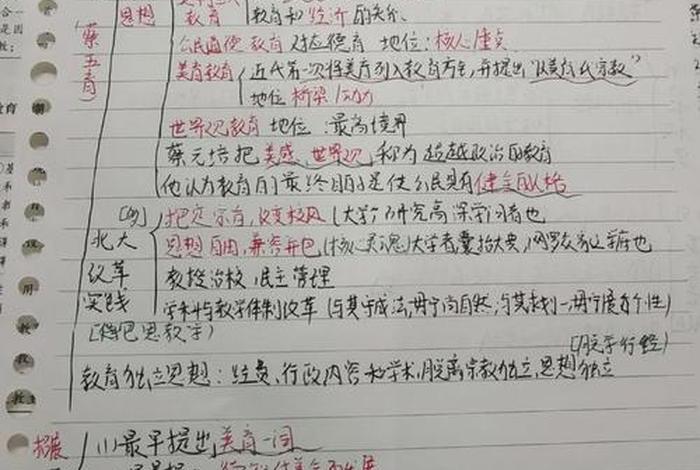 思想
教育 教育和经济的关系.
(蔡五育)
公民道德教育 又称德育 地位:核心重点
美育教育 近代第一次将美育列入教育方针,并提出"以美育代宗教"
地位 桥梁/动力
世界观教育 地位:最高境界
蔡元培把美感、世界观,称为超越政治的教育
他认为教育的最终目的是使公民具有健全的人格
北大改革实践
抱定宗旨,改变校风(大学乃研究高深学问者也
思想自由,兼容并包(核心灵魂)大学者囊括大典,网罗众家之学府也
教授治校,民主管理
学科与教学体制改革(与其守成法,毋宁尚自然;与其求划一,毋宁展个性)
教育独立思想:经费、行政内容和学术,脱离宗教独立,思想独立
拓展
(1)最早提出,美育一词